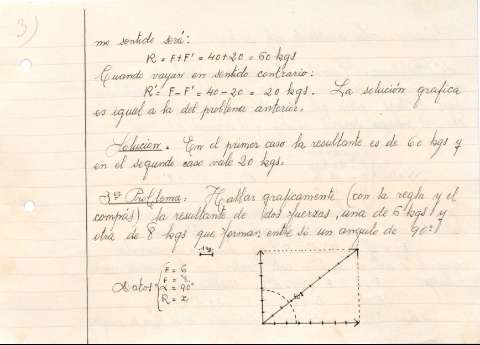 3)
mo sentido será:
R = F+F' = 40+20 = 60 kgs
Cuando vayan en sentido contrario:
R' = F-F' = 40-20 = 20 kgs. La solución grafica
es igual a la del problema anterior.
Solucion. En el primer caso la resultante es de 60 kgs y
en el segundo caso vale 20 kgs.
3er Problema. Hallar graficamente (con la regla y el
compás) la resultante de dos fuerzas, una de 6 kgs y
otra de 8 kgs que forman entre si un angulo de 90º
Datos
F = 6
F = 8
= 90º
R = x